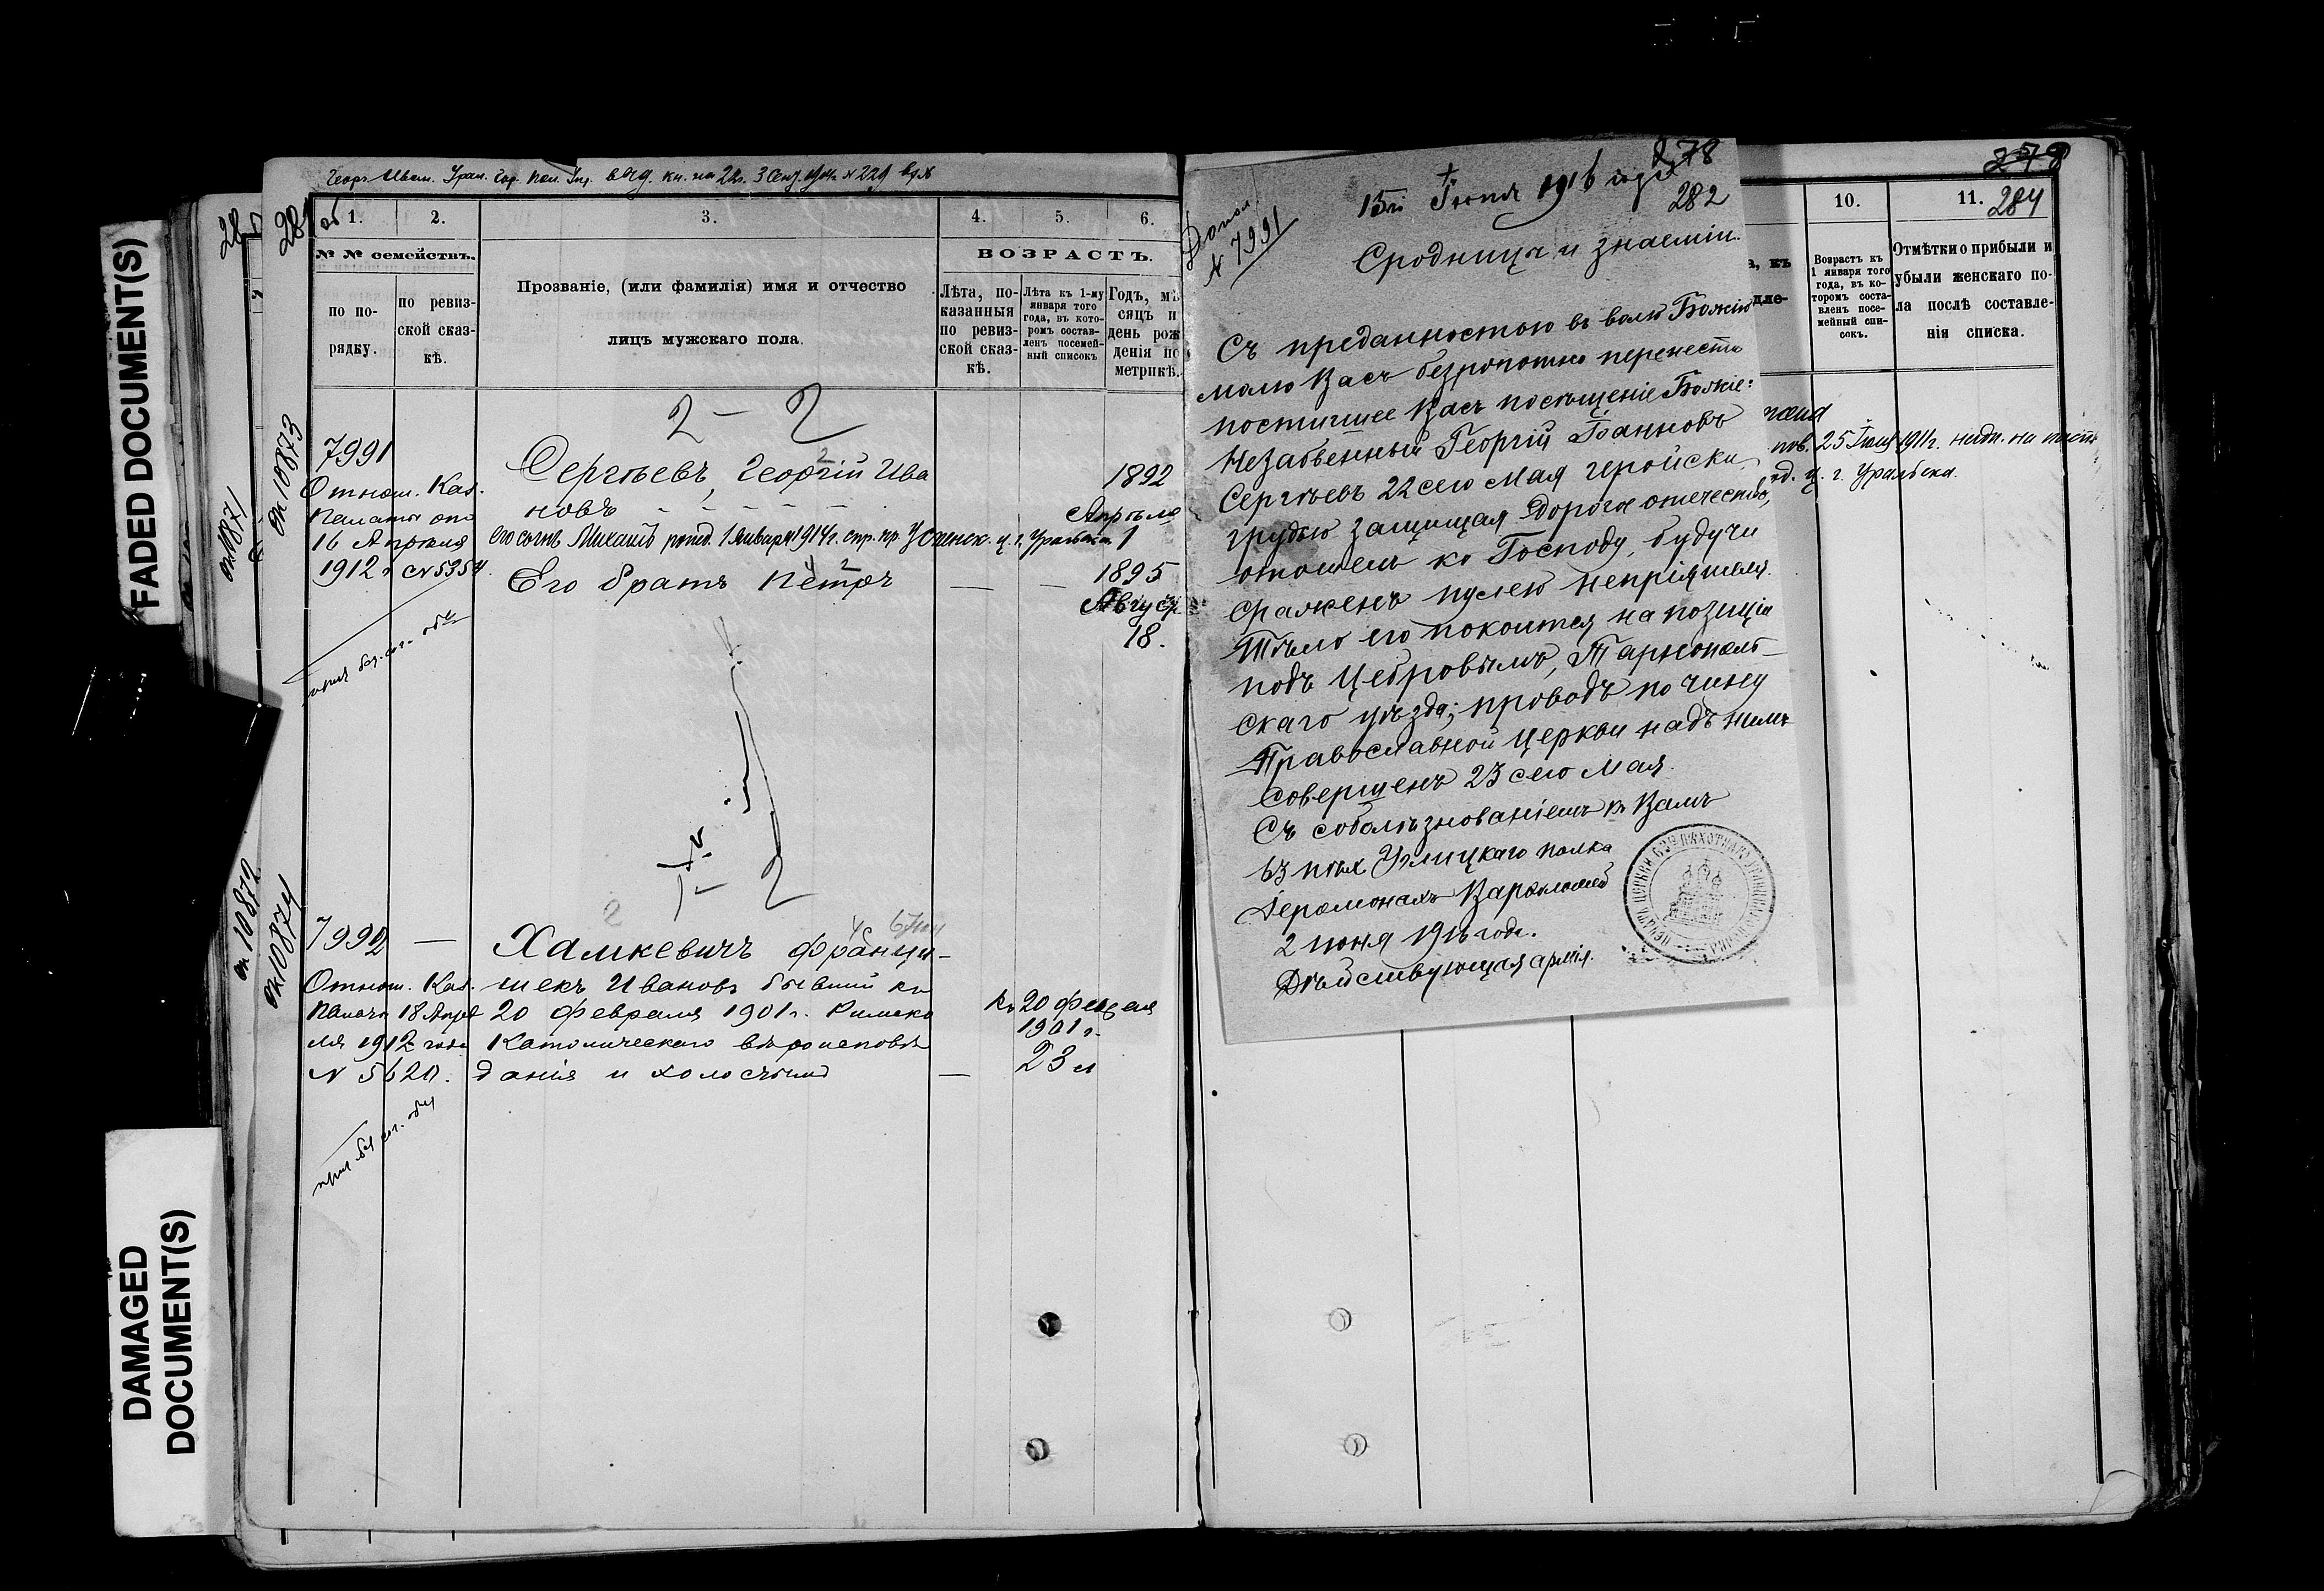 FADED DOCUMENT(S)
DAMAGED
DOCUMENT(S)
1.
2.
3.
4.
5.
6.
№ № семействъ.
ВОЗРАСТЪ.
по по-
рядку.
по ревиз-
ской сказ-
кѣ.
Прозваніе, (или фамилія) имя и отчество
лицъ мужскаго пола.
Лѣта, по-
казанныя
по ревиз-
ской сказ-
кѣ.
Лѣта къ 1-му
января того
года, въ кото-
ромъ состав-
ленъ посемей-
ный списокъ
Годъ, мѣ
сяцъ и
день рож
денія по
метрикѣ.
2 – 2
7991
Отнош. Каз.
Палаты отъ
16 Апрѣля
1912 г № 5354.
Сергѣевъ, Георгій Ива
новъ
1892
Апрѣля
1
его сынъ Михаилъ рожд. 1 января 1914 г. спр. пр. Успенск. ц. г. Уральска
Его братъ Петръ
1895
Август.
18.
7992
Отнош. Каз.
Палаты 18 Апрѣ
ля 1912 года
№ 5620.
Хамкевичъ Франци-
шекъ Ивановъ бывшій къ
20 Февраля 1901 г. Римско
Католическаго вѣроисповѣ
данія и холостый
Къ 20 Февраля
1901 г.
23 л
ок 10871
ок 10873
ок 10872
ок 10874
Допол.
№ 7991
278
282
15го Іюня 1916 года
Сродницы и знаеміи.
Съ преданностью въ волю Божію
молю Васъ безропотно перенести
постигшее Васъ посѣщеніе Божіе:
Незабвенный Георгій Іоанновъ
Сергѣевъ 22 сего Мая геройски,
грудью защищая дорогое отечество,
отошелъ ко Господу, будучи
сраженъ пулею непріятеля.
Тѣло его покоится на позиціи
подъ Цебровымъ, Тарнополь-
скаго уѣзда; проводъ по чину
Православной Церкви надъ нимъ
совершенъ 23 сего Мая.
Съ соболѣзнованіемъ къ Вамъ
63 пѣх Углицкаго полка
Іеромонахъ Варѳоломей
2 іюня 1916 года.
Дѣйствующая армія.
278
284
10.
11.
Возрастъ къ
1 января того
года, въ ко-
торомъ соста-
вленъ посе-
мейный спи-
сокъ.
Отмѣтки о прибыли и
убыли женскаго по-
ла послѣ составле-
нія списка.
а, къ
дле-
пов. 25 Іюля 1911 г.
ц. г. Уральска.